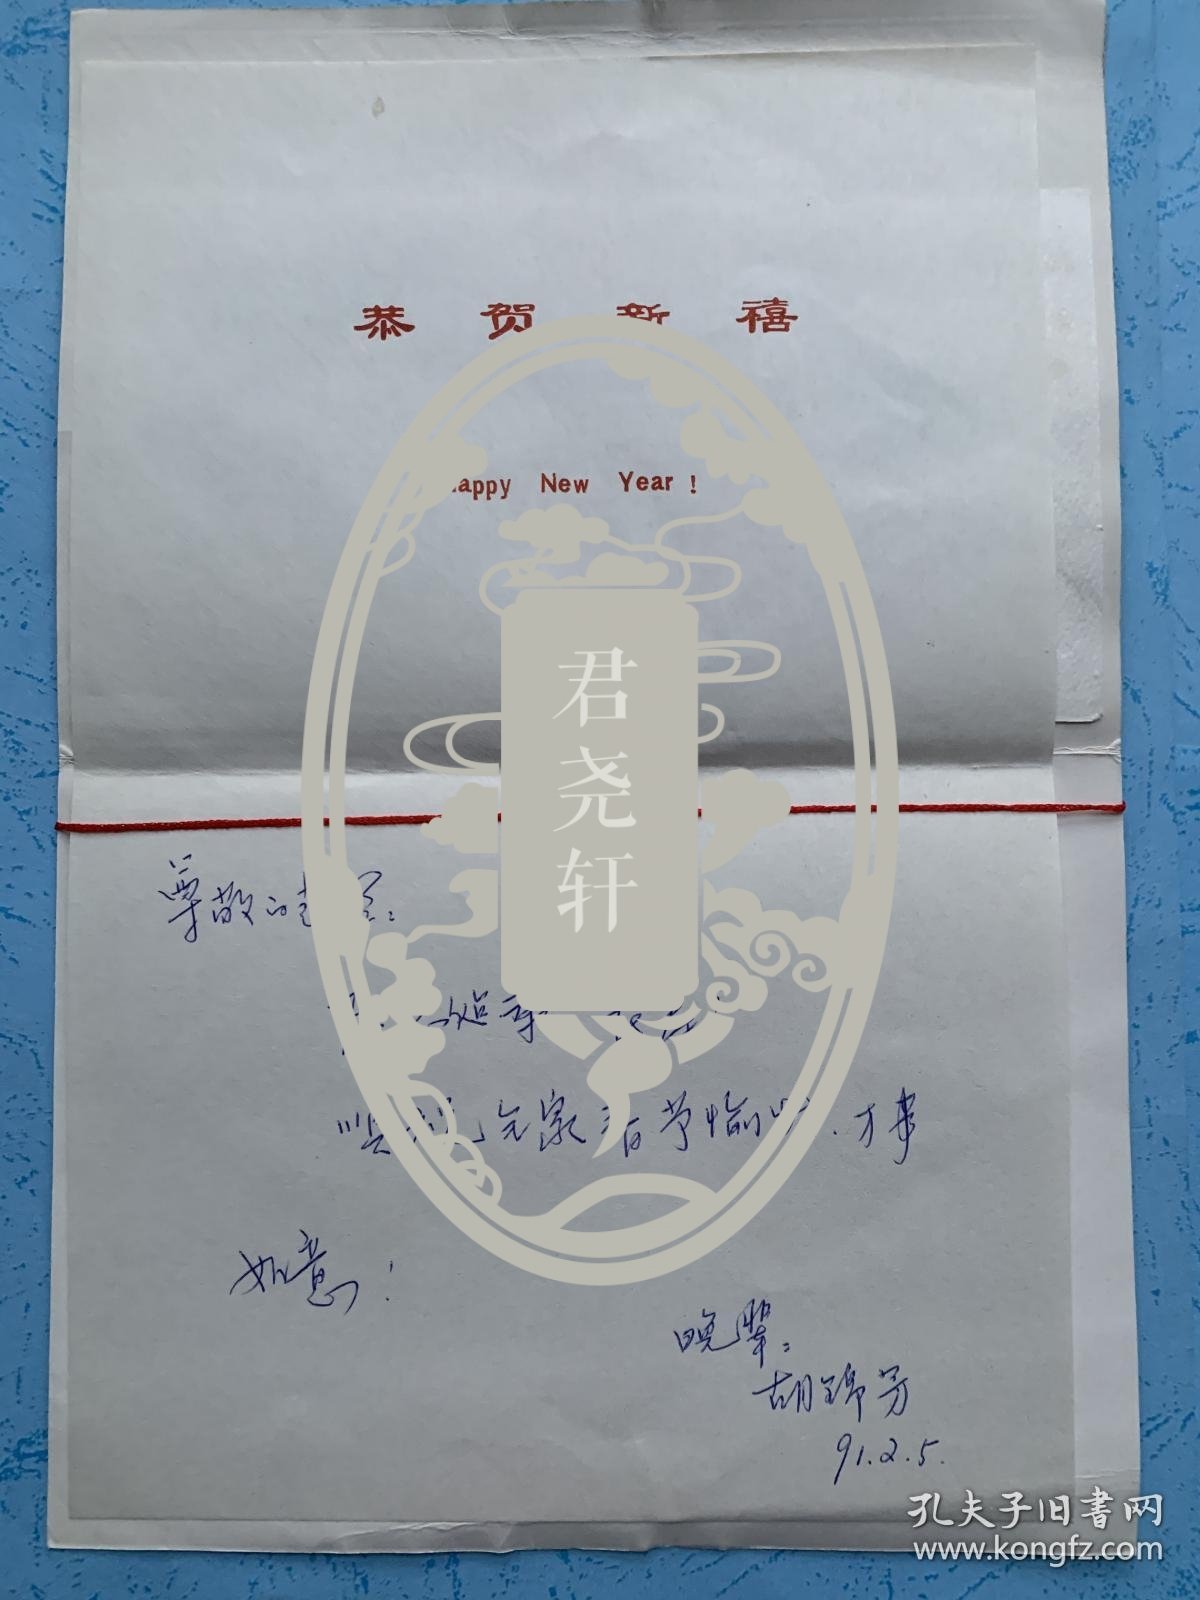 恭贺新禧
Happy New Year!
君尧轩
尊敬的
全家春节愉快、万事
如意!
晚辈:
胡锦芳
91.2.5.
孔夫子旧書网
www.kongfz.com